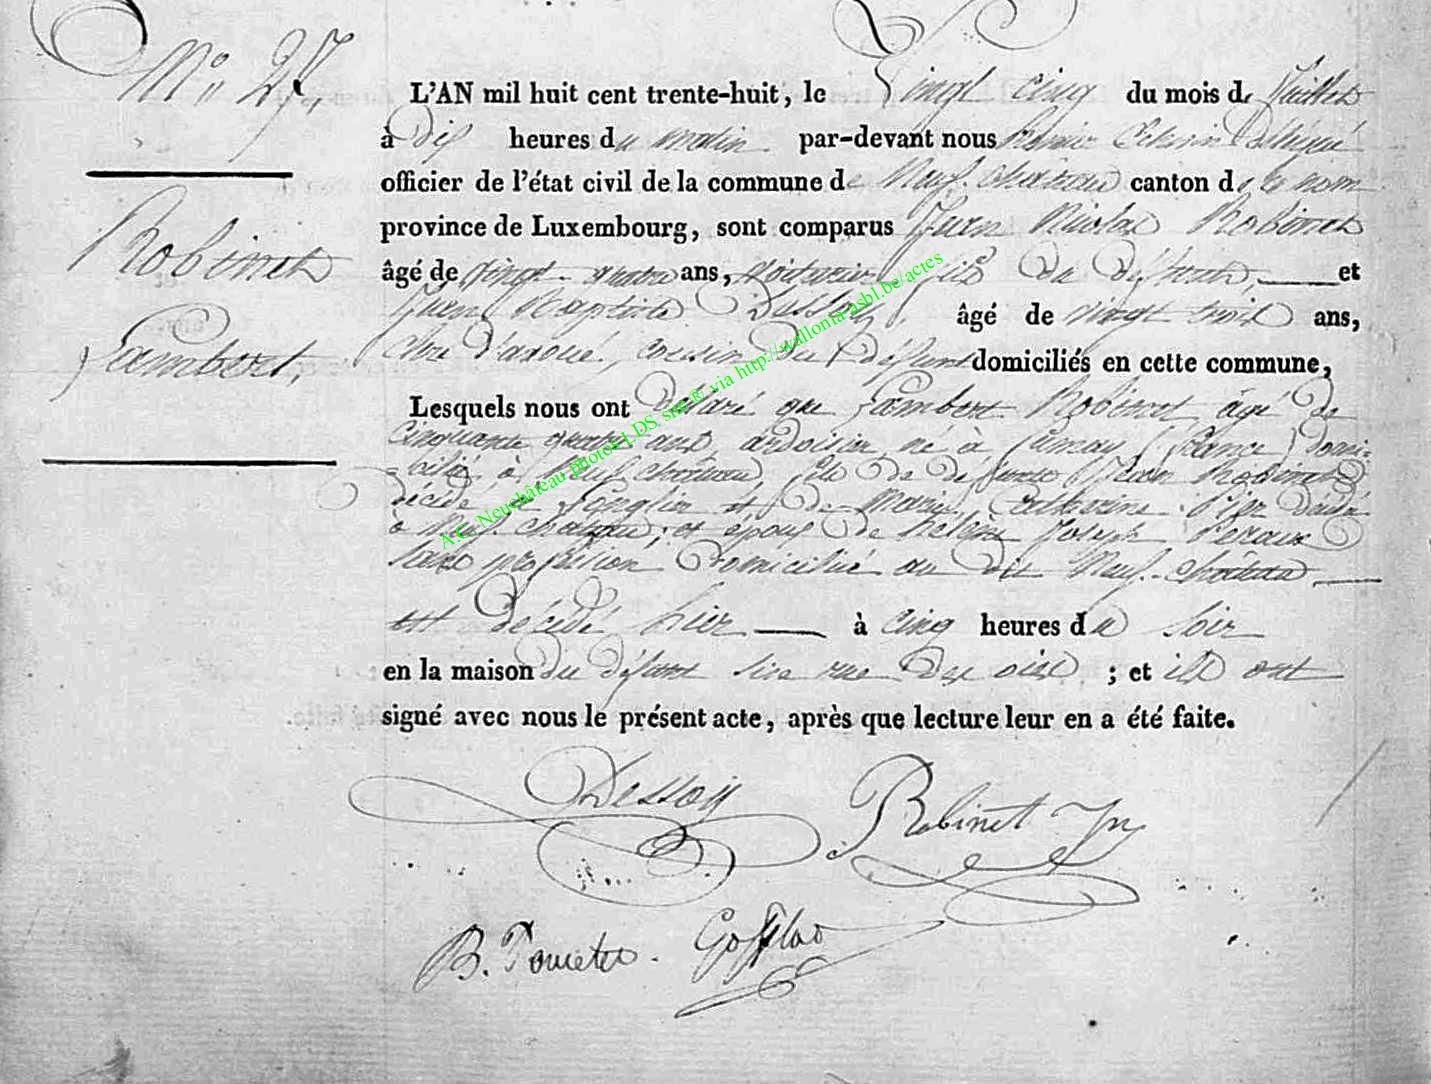 N° 27.
Robinet
Lambert.
L'AN mil huit cent trente-huit, le Vingt cinq du mois de Juillet
à dix heures du matin par-devant nous
officier de l'état civil de la commune de Neufchateau canton de ce nom
province de Luxembourg, sont comparus Jean Nicolas Robinet
âgé de vingt quatre ans, fils du défunt, et
Jean Baptiste Dessoy âgé de vingt trois ans,
clerc d'avoué, cousin du défunt domiciliés en cette commune,
Lesquels nous ont déclaré que Lambert Robinet âgé de
cinquante ans ardoisier né à fumay (france) domi-
cilié à Neufchateau, fils de défunt Jean Robinet
décédé à et de Marie Catherine décédé
à Neufchateau, et époux de helene Joseph
sans profession domiciliée au dit Neuf-chateau
est décédé hier à cinq heures du soir
en la maison du défunt sise rue ; et ils ont
signé avec nous le présent acte, après que lecture leur en a été faite.
Dessoy Robinet Jn
B.
A.C. Neuchâteau photos LDS site © via http://wallonia-asbl.be/actes